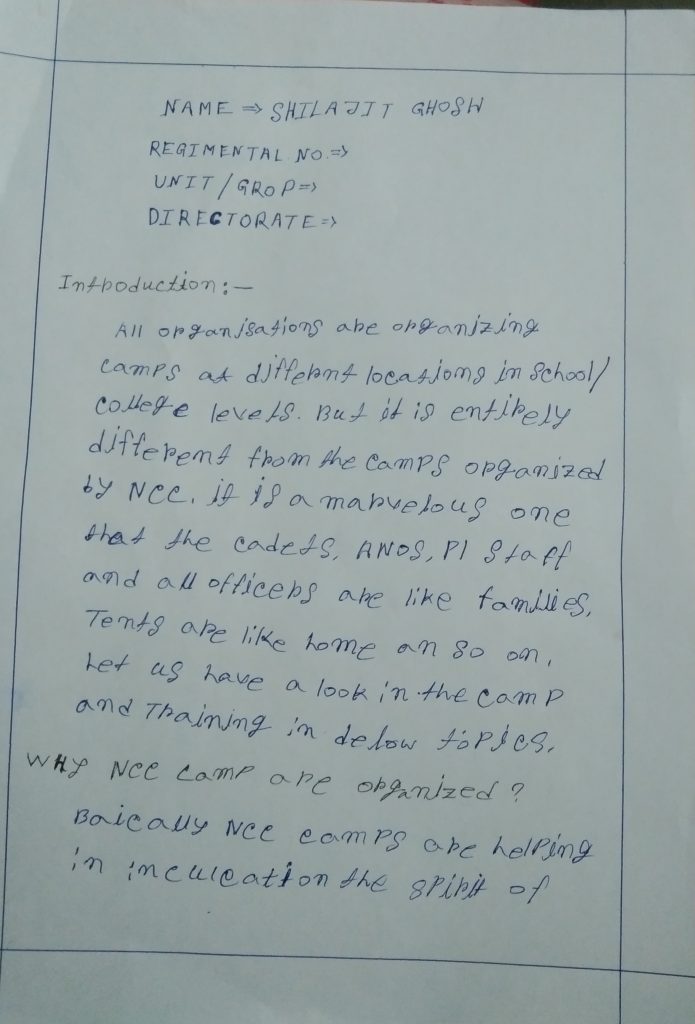 NAME => SHILAJIT GHOSH
REGIMENTAL NO.=>
UNIT/GROP=>
DIRECTORATE=>
Introduction:-
All organisations are organizing
camps at differnt locations in school/
college levels. But it is entirely
different from the camps organized
by NCC. it is a marvelous one
that the cadets, ANOS, PI staff
and all officers are like families,
Tents are like home an so on,
Let us have a look in the camp
and Training in below topics.
WHY NCC camp are organized?
Baically NCC camps are helping
in inculcation the spirit of